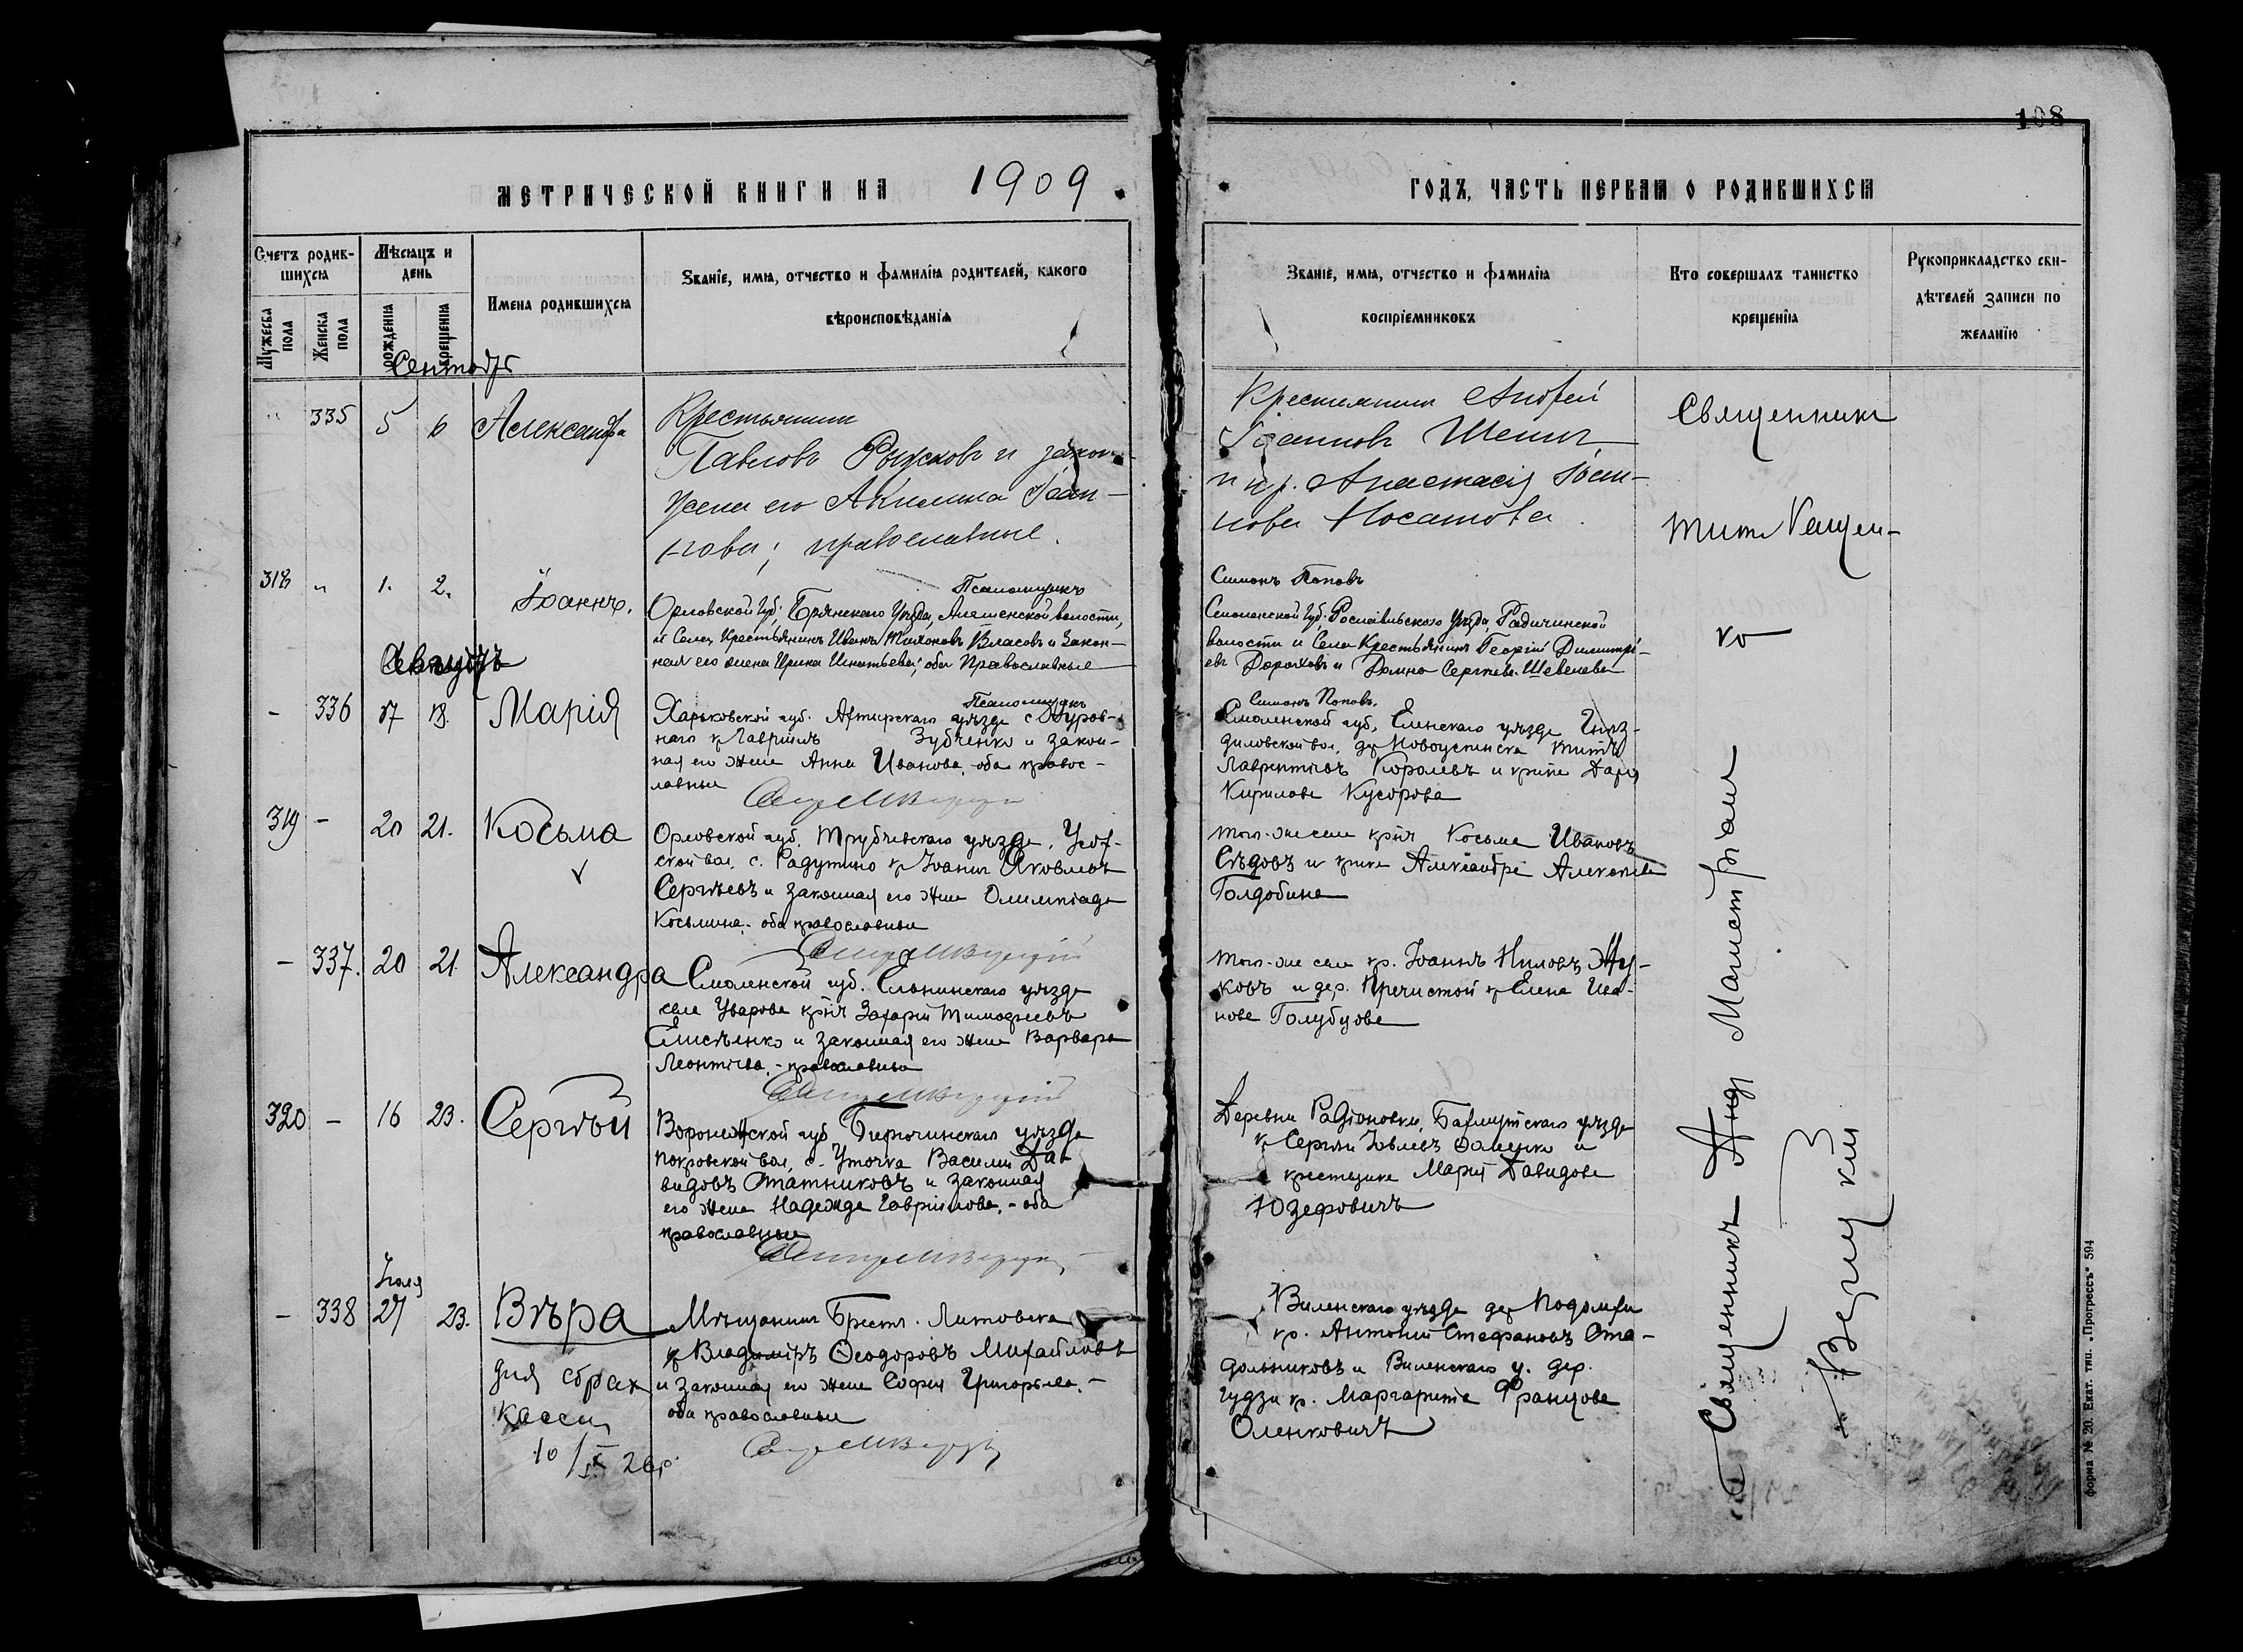 108
МЕТРИЧЕСКОЙ КНИГИ НА 1909
ГОДЪ, ЧАСТЬ ПЕРВАЯ О РОДИВШИХСЯ
Счетъ родив-
шихся
Мѣсяцъ и
день
Мужеска
пола
Женска
пола
рожденія
крещенія
Имена родившихся
Званіе, имя, отчество и фамилія родителей, какого
вѣроисповѣданія
Званіе, имя, отчество и фамилія
воспріемниковъ
Кто совершалъ таинство
крещенія
Рукоприкладство сви-
дѣтелей записи по
желанію
Сентябр
" 335 5 6 Александра
Крестьянинъ
Павловъ Рыжковъ и закон-
жена его Акилина Іоан-
нова; православные.
Крестьянинъ Андрей
Іоанновъ Шеинъ
и кр. Анастасія Іоан-
нова Носатова.
Священникъ
Титъ
ко
318 " 1. 2. Іоаннъ.
Псаломщикъ
Орловской Губ; Брянскаго Уѣзда, волости,
и Села Крестьянинъ Иванъ Тихоновъ Власовъ и Закон-
ная его жена Ирина Игнатьева; оба Православные
Симонъ Поповъ
Смоленской Губ; Рославльскаго Уѣзда, Радичинской
волости и Села Крестьянинъ Георгій Димитрі-
евъ Дороховъ и Домна Сергѣева Шевелева
- 336 17 18. Марія
Псаломщикъ
Харьковской губ. Ахтирскаго уѣзда с.
наго кр Гавріилъ Зубченко и закон-
ная его жена Анна Иванова, оба правос-
лавные
Симонъ Поповъ.
Смоленской губ, Еленскаго уѣзда Гнѣз-
диловской вол, дер Титъ
Лаврентіевъ Королевъ и кр-нка Дарія
Кирилова Кусорова
319 - 20 21. Косьма
Орловской губ. Трубчевскаго уѣзда,
ской вол, с. Радутино кр Іоаннъ Яковлевъ
Сергѣевъ и законная его жена Олимпіада
Косьмина, оба православные
того-же села кр-нъ Косьма Ивановъ
Сѣдовъ и кр-нка Александра
Голдобина
- 337. 20 21. Александра
Смоленской губ. Ельнинскаго уѣзда
села Уварова кр-нъ Захарій Тимофеевъ
Елисѣенко и законная его жена Варвара
Леонтіева, - православные
того-же села кр. Іоаннъ Ниловъ Жу-
ковъ и дер. Пречистой кр Елена Ива-
нова Голубцова
320 - 16 23. Сергѣй
Воронежской губ Бирючинскаго уѣзда
Покровской вол, с. Уточка Василій Да-
видовъ Статниковъ и законная
его жена Надежда Гавріилова, - оба
православные
Деревни Радіоновки, Бахмутскаго уѣзда
кр Сергѣй Іовлевъ и
крестьянка Марія Давидова
Юзефовичъ
Іюля
- 338 27 23. Вѣра
Мѣщанинъ Брестъ. Литовска
Владиміръ Ѳеодоровъ Михайловъ
и законная его жена Софія Григорьева, -
оба православные
для страх
кассы
10/IX 26г.
Виленскаго уѣзда дер
кр. Антоній Стефановъ Ста-
дольниковъ и Виленскаго у. дер.
Гудзи кр. Маргарита Францова
Оленковичъ
Священникъ Анд
форма № 20. Екат. тип. „Прогрессъ" 594